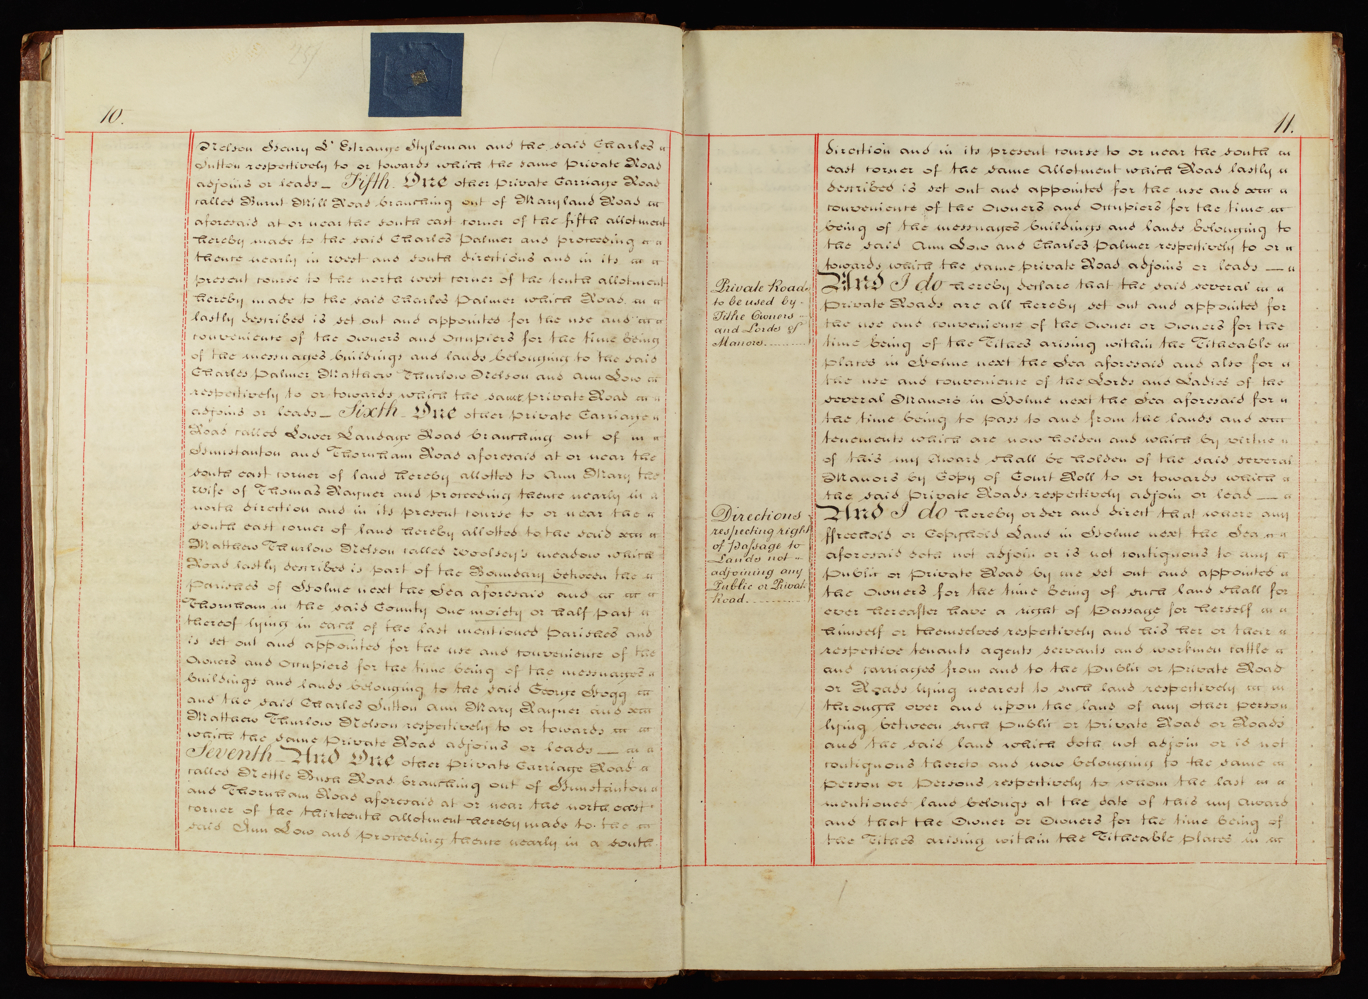 10.
Nelson Henry L'Estrange Styleman and the said Charles
Sutton respectively to or towards which the same Private Road
adjoins or leads – Fifth – One other Private Carriage Road
called Burnt Mill Road branching out of Maryland Road
aforesaid at or near the south east corner of the fifth allotment
hereby made to the said Charles Palmer and proceeding
thence nearly in west and south directions and in its
present course to the north west corner of the tenth allotment
hereby made to the said Charles Palmer which Road
lastly described is set out and appointed for the use and
convenience of the Owners and Occupiers for the time being
of the messuages buildings and lands belonging to the said
Charles Palmer Matthew Thurlow Nelson and Ann Low
respectively to or towards which the same private Road
adjoins or leads – Sixth – One other Private Carriage
Road called Lower Landage Road branching out of
Hunstanton and Thornham Road aforesaid at or near the
south east corner of land hereby allotted to Ann Mary the
wife of Thomas Rayner and proceeding thence nearly in a
north direction and in its present course to or near the
south east corner of land hereby allotted to the said
Matthew Thurlow Nelson called Woolsey's meadow which
Road lastly described is part of the Boundary between the
parishes of Holme next the Sea aforesaid and
Thornham in the said County One moiety or half part
thereof lying in each of the last mentioned parishes and
is set out and appointed for the use and convenience of the
Owners and Occupiers for the time being of the messuages
buildings and lands belonging to the said George Hogg
and the said Charles Sutton Ann Mary Rayner and
Matthew Thurlow Nelson respectively to or towards
which the same Private Road adjoins or leads —
Seventh – And One other Private Carriage Road
called Nettle Bush Road branching out of Hunstanton
and Thornham Road aforesaid at or near the north east
corner of the thirteenth allotment hereby made to the
said Ann Low and proceeding thence nearly in a south
11.
direction and in its present course to or near the south
east corner of the same Allotment which Road lastly
described is set out and appointed for the use and
convenience of the Owners and Occupiers for the time
being of the messuages buildings and lands belonging to
the said Ann Low and Charles Palmer respectively to or
towards which the same private Road adjoins or leads —
Private Roads
to be used by
Tithe Owners
and Lords of
Manors.
And I do hereby declare that the said several
Private Roads are all hereby set out and appointed for
the use and convenience of the Owner or Owners for the
time being of the Tithes arising within the Titheable
places in Holme next the Sea aforesaid and also for
the use and convenience of the Lords and Ladies of the
several Manors in Holme next the Sea aforesaid for
the time being to pass to and from the lands and
tenements which are now holden and which by virtue
of this my Award shall be holden of the said several
Manors by Copy of Court Roll to or towards which
the said Private Roads respectively adjoin or lead —
Directions
respecting right
of Passage to
Lands not
adjoining any
Public or Private
Road.
And I do hereby order and direct that where any
ffreehold or Copyhold Land in Holme next the Sea
aforesaid doth not adjoin or is not contiguous to any
Public or Private Road by me set out and appointed
the Owners for the time being of such land shall for
ever hereafter have a right of Passage for herself
himself or themselves respectively and his her or their
respective tenants agents servants and workmen cattle
and carriages from and to the Public or Private Road
or Roads lying nearest to such land respectively
through over and upon the land of any other person
lying between such Public or Private Road or Roads
and the said land which doth not adjoin or is not
contiguous thereto and now belonging to the same
person or persons respectively to whom the last
mentioned land belongs at the date of this my Award
and that the Owner or Owners for the time being of
the Tithes arising within the Titheable places in